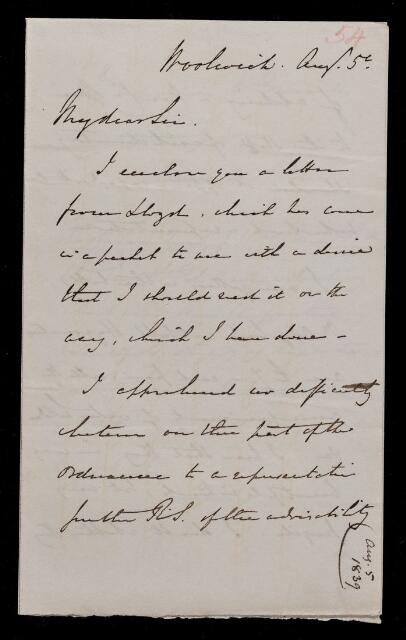 54
Woolwich. Augt. 5th
My dear Sir.
I enclose you a letter
from Lloyd, which has come
in a packet to me with a desire
that I should read it on the
way, which I have done -
I apprehend no difficulty
whatever on the part of the
Ordnance to a representation
from the R.S. of the advisability
Aug. 5
1839